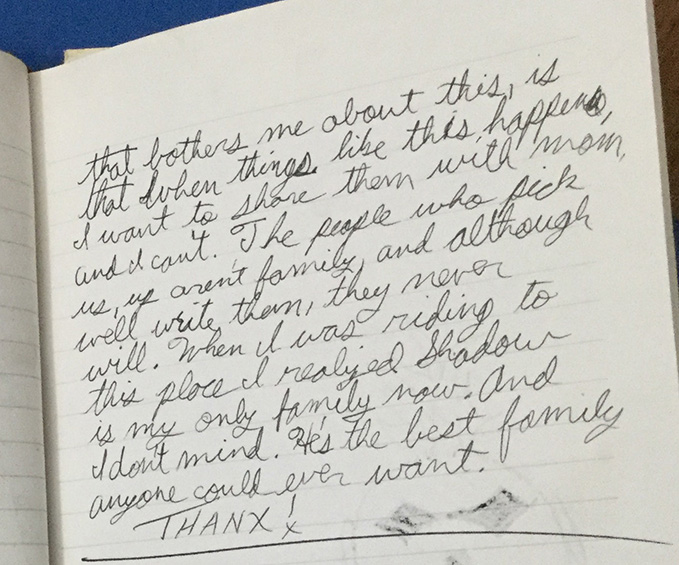 that bothers me about this, is
that when things like this happens,
I want to share them with mom,
and I can't. The people who pick
us, up aren't family, and although
we'll write them, they never
will. When I was riding to
this place I realized Shadow
is my only family now. And
I don't mind. He's the best family
anyone could ever want.
THANX!